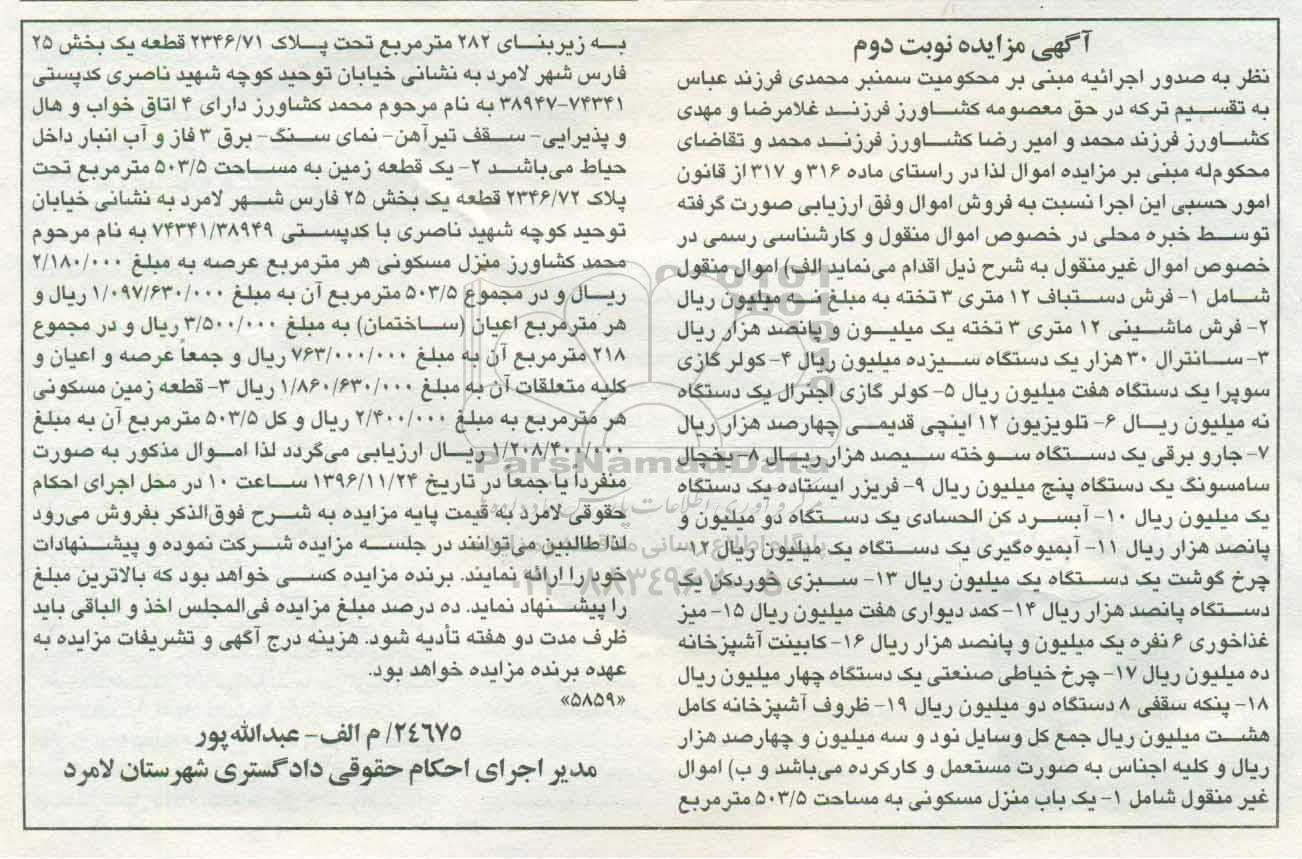 آگهی مزایده نوبت دوم
نظر به صدور اجرائیه مبنی بر محکومیت سمنبر محمدی فرزند عباس
به تقسیم ترکه در حق معصومه کشاورز فرزند غلامرضا و مهدی
کشاورز فرزند محمد و امیر رضا کشاورز فرزند محمد و تقاضای
محکوم‌له مبنی بر مزایده اموال لذا در راستای ماده ۳۱۶ و ۳۱۷ از قانون
امور حسبی این اجرا نسبت به فروش اموال وفق ارزیابی صورت گرفته
توسط خبره محلی در خصوص اموال منقول و کارشناسی رسمی در
خصوص اموال غیرمنقول به شرح ذیل اقدام می‌نماید الف) اموال منقول
شامل ۱- فرش دستباف ۱۲ متری ۳ تخته به مبلغ نه میلیون ریال
۲- فرش ماشینی ۱۲ متری ۳ تخته یک میلیون و پانصد هزار ریال
۳- سانترال ۳۰ هزار یک دستگاه سیزده میلیون ریال ۴- کولر گازی
سوپرا یک دستگاه هفت میلیون ریال ۵- کولر گازی اجنرال یک دستگاه
نه میلیون ریال ۶- تلویزیون ۱۲ اینچی قدیمی چهارصد هزار ریال
۷- جارو برقی یک دستگاه سوخته سیصد هزار ریال ۸- یخچال
سامسونگ یک دستگاه پنج میلیون ریال ۹- فریزر ایستاده یک دستگاه
یک میلیون ریال ۱۰- آبسرد کن الحسادی یک دستگاه دو میلیون و
پانصد هزار ریال ۱۱- آبمیوه‌گیری یک دستگاه یک میلیون ریال ۱۲-
چرخ گوشت یک دستگاه یک میلیون ریال ۱۳- سبزی خوردکن یک
دستگاه پانصد هزار ریال ۱۴- کمد دیواری هفت میلیون ریال ۱۵- میز
غذاخوری ۶ نفره یک میلیون و پانصد هزار ریال ۱۶- کابینت آشپزخانه
ده میلیون ریال ۱۷- چرخ خیاطی صنعتی یک دستگاه چهار میلیون ریال
۱۸- پنکه سقفی ۸ دستگاه دو میلیون ریال ۱۹- ظروف آشپزخانه کامل
هشت میلیون ریال جمع کل وسایل نود و سه میلیون و چهارصد هزار
ریال و کلیه اجناس به صورت مستعمل و کارکرده می‌باشد و ب) اموال
غیر منقول شامل ۱- یک باب منزل مسکونی به مساحت ۵۰۳/۵ مترمربع
به زیربنای ۲۸۲ مترمربع تحت پلاک ۲۳۴۶/۷۱ قطعه یک بخش ۲۵
فارس شهر لامرد به نشانی خیابان توحید کوچه شهید ناصری کدپستی
۷۴۳۴۱-۳۸۹۴۷ به نام مرحوم محمد کشاورز دارای ۴ اتاق خواب و هال
و پذیرایی- سقف تیرآهن- نمای سنگ- برق ۳ فاز و آب انبار داخل
حیاط می‌باشد ۲- یک قطعه زمین به مساحت ۵۰۳/۵ مترمربع تحت
پلاک ۲۳۴۶/۷۲ قطعه یک بخش ۲۵ فارس شهر لامرد به نشانی خیابان
توحید کوچه شهید ناصری با کدپستی ۷۴۳۴۱/۳۸۹۴۹ به نام مرحوم
محمد کشاورز منزل مسکونی هر مترمربع عرصه به مبلغ ۲/۱۸۰/۰۰۰
ریال و در مجموع ۵۰۳/۵ مترمربع آن به مبلغ ۱/۰۹۷/۶۳۰/۰۰۰ ریال و
هر مترمربع اعیان (ساختمان) به مبلغ ۳/۵۰۰/۰۰۰ ریال و در مجموع
۲۱۸ مترمربع آن به مبلغ ۷۶۳/۰۰۰/۰۰۰ ریال و جمعاً عرصه و اعیان و
کلیه متعلقات آن به مبلغ ۱/۸۶۰/۶۳۰/۰۰۰ ریال ۳- قطعه زمین مسکونی
هر مترمربع به مبلغ ۲/۴۰۰/۰۰۰ ریال و کل ۵۰۳/۵ مترمربع آن به مبلغ
۱/۲۰۸/۴۰۰/۰۰۰ ریال ارزیابی می‌گردد لذا اموال مذکور به صورت
منفرداً یا جمعاً در تاریخ ۱۳۹۶/۱۱/۲۴ ساعت ۱۰ در محل اجرای احکام
حقوقی لامرد به قیمت پایه مزایده به شرح فوق‌الذکر بفروش می‌رود
لذا طالبین می‌توانند در جلسه مزایده شرکت نموده و پیشنهادات
خود را ارائه نمایند. برنده مزایده کسی خواهد بود که بالاترین مبلغ
را پیشنهاد نماید. ده درصد مبلغ مزایده فی‌المجلس اخذ و الباقی باید
ظرف مدت دو هفته تأدیه شود. هزینه درج آگهی و تشریفات مزایده به
عهده برنده مزایده خواهد بود.
«۵۸۵۹»
۲۴۶۷۵/ م الف- عبدالله پور
مدیر اجرای احکام حقوقی دادگستری شهرستان لامرد
ParsNamadData